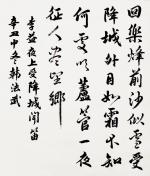 回樂烽前沙似雪受
降城外月如霜不知
何處吹蘆管一夜
征人盡望鄉
李益夜上受降城聞笛
辛丑中冬韓法武